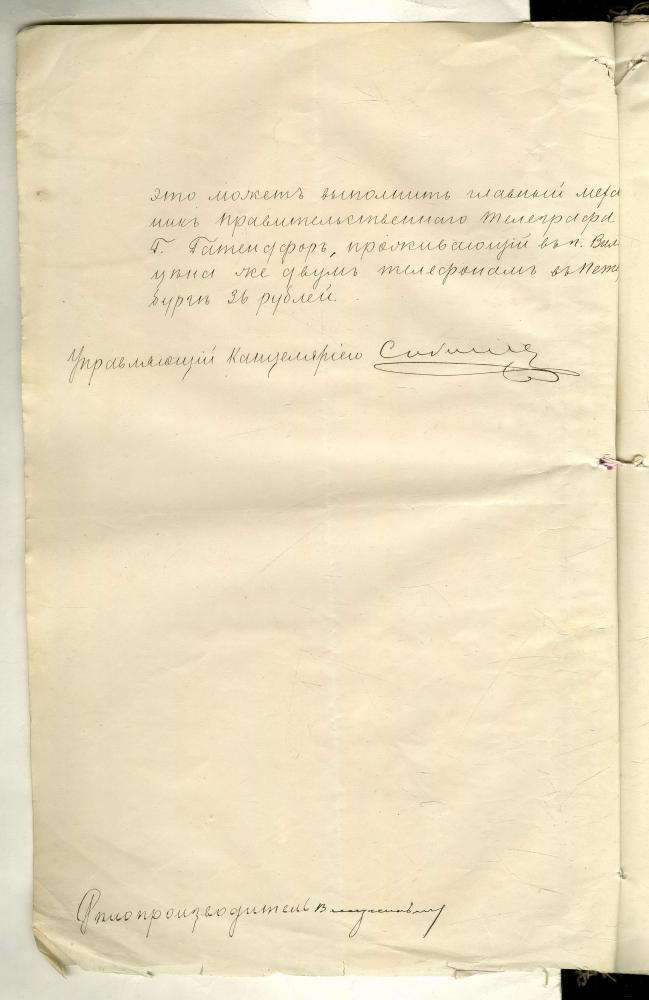 это можетъ выполнить главный меха
никъ Правительственнаго Телеграфа
Г. Гатендфоръ, проживающій въ г. Вил
цѣна же двумъ телефонамъ въ Петер
бургѣ 36 рублей.
Управляющій Канцеляріею
Дѣлопроизводитель